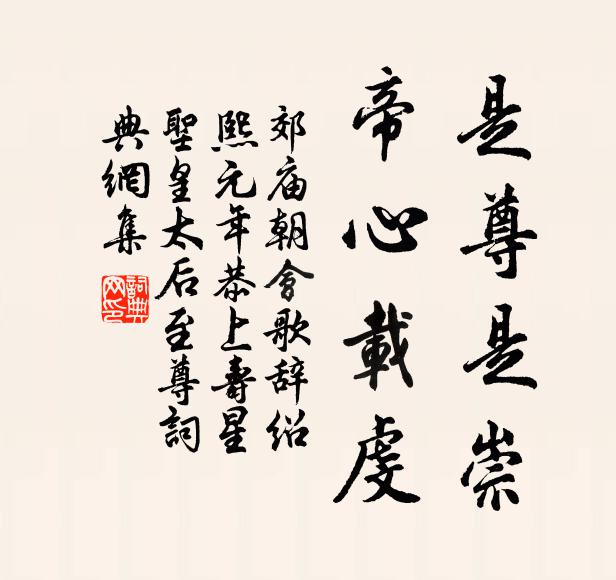 是尊是崇
帝心載虔
郊庙朝會歌辞绍
熙元年恭上壽星
聖皇太后至尊詞
典網集
詞典网印